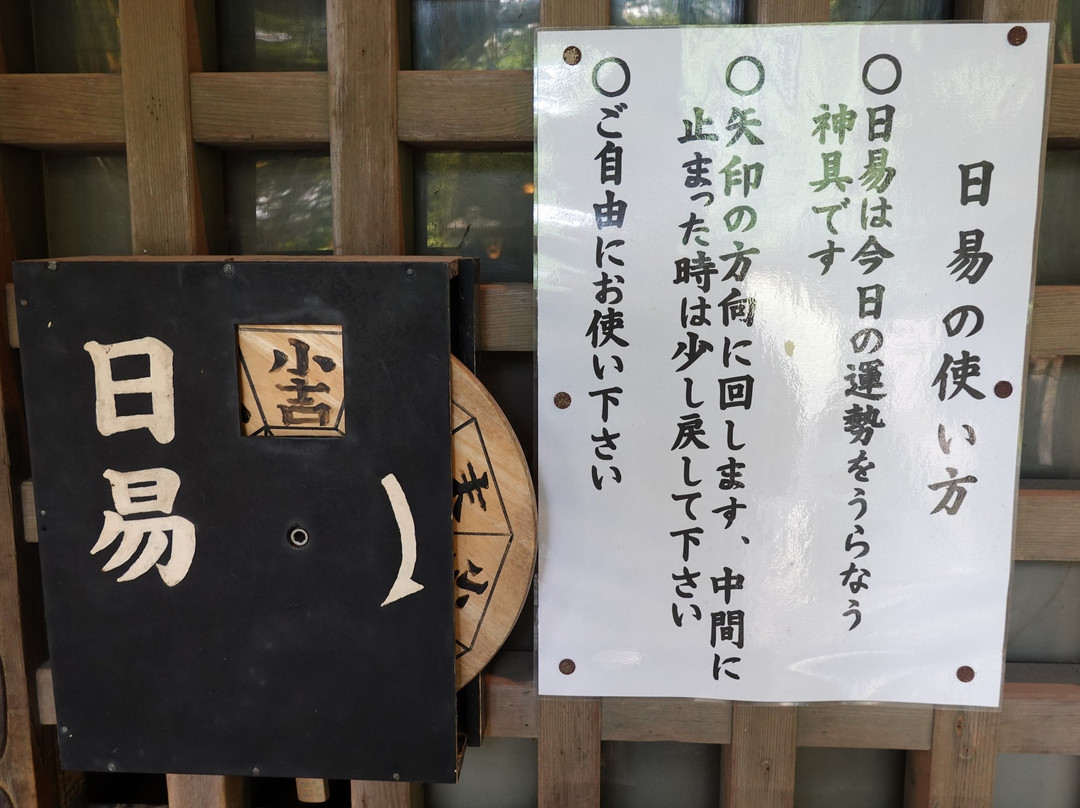 日易の使い方
○日易は今日の運勢をうらなう
神具です
○矢印の方向に回します、中間に
止まった時は少し戻して下さい
○ご自由にお使い下さい
日易
小吉
末
小